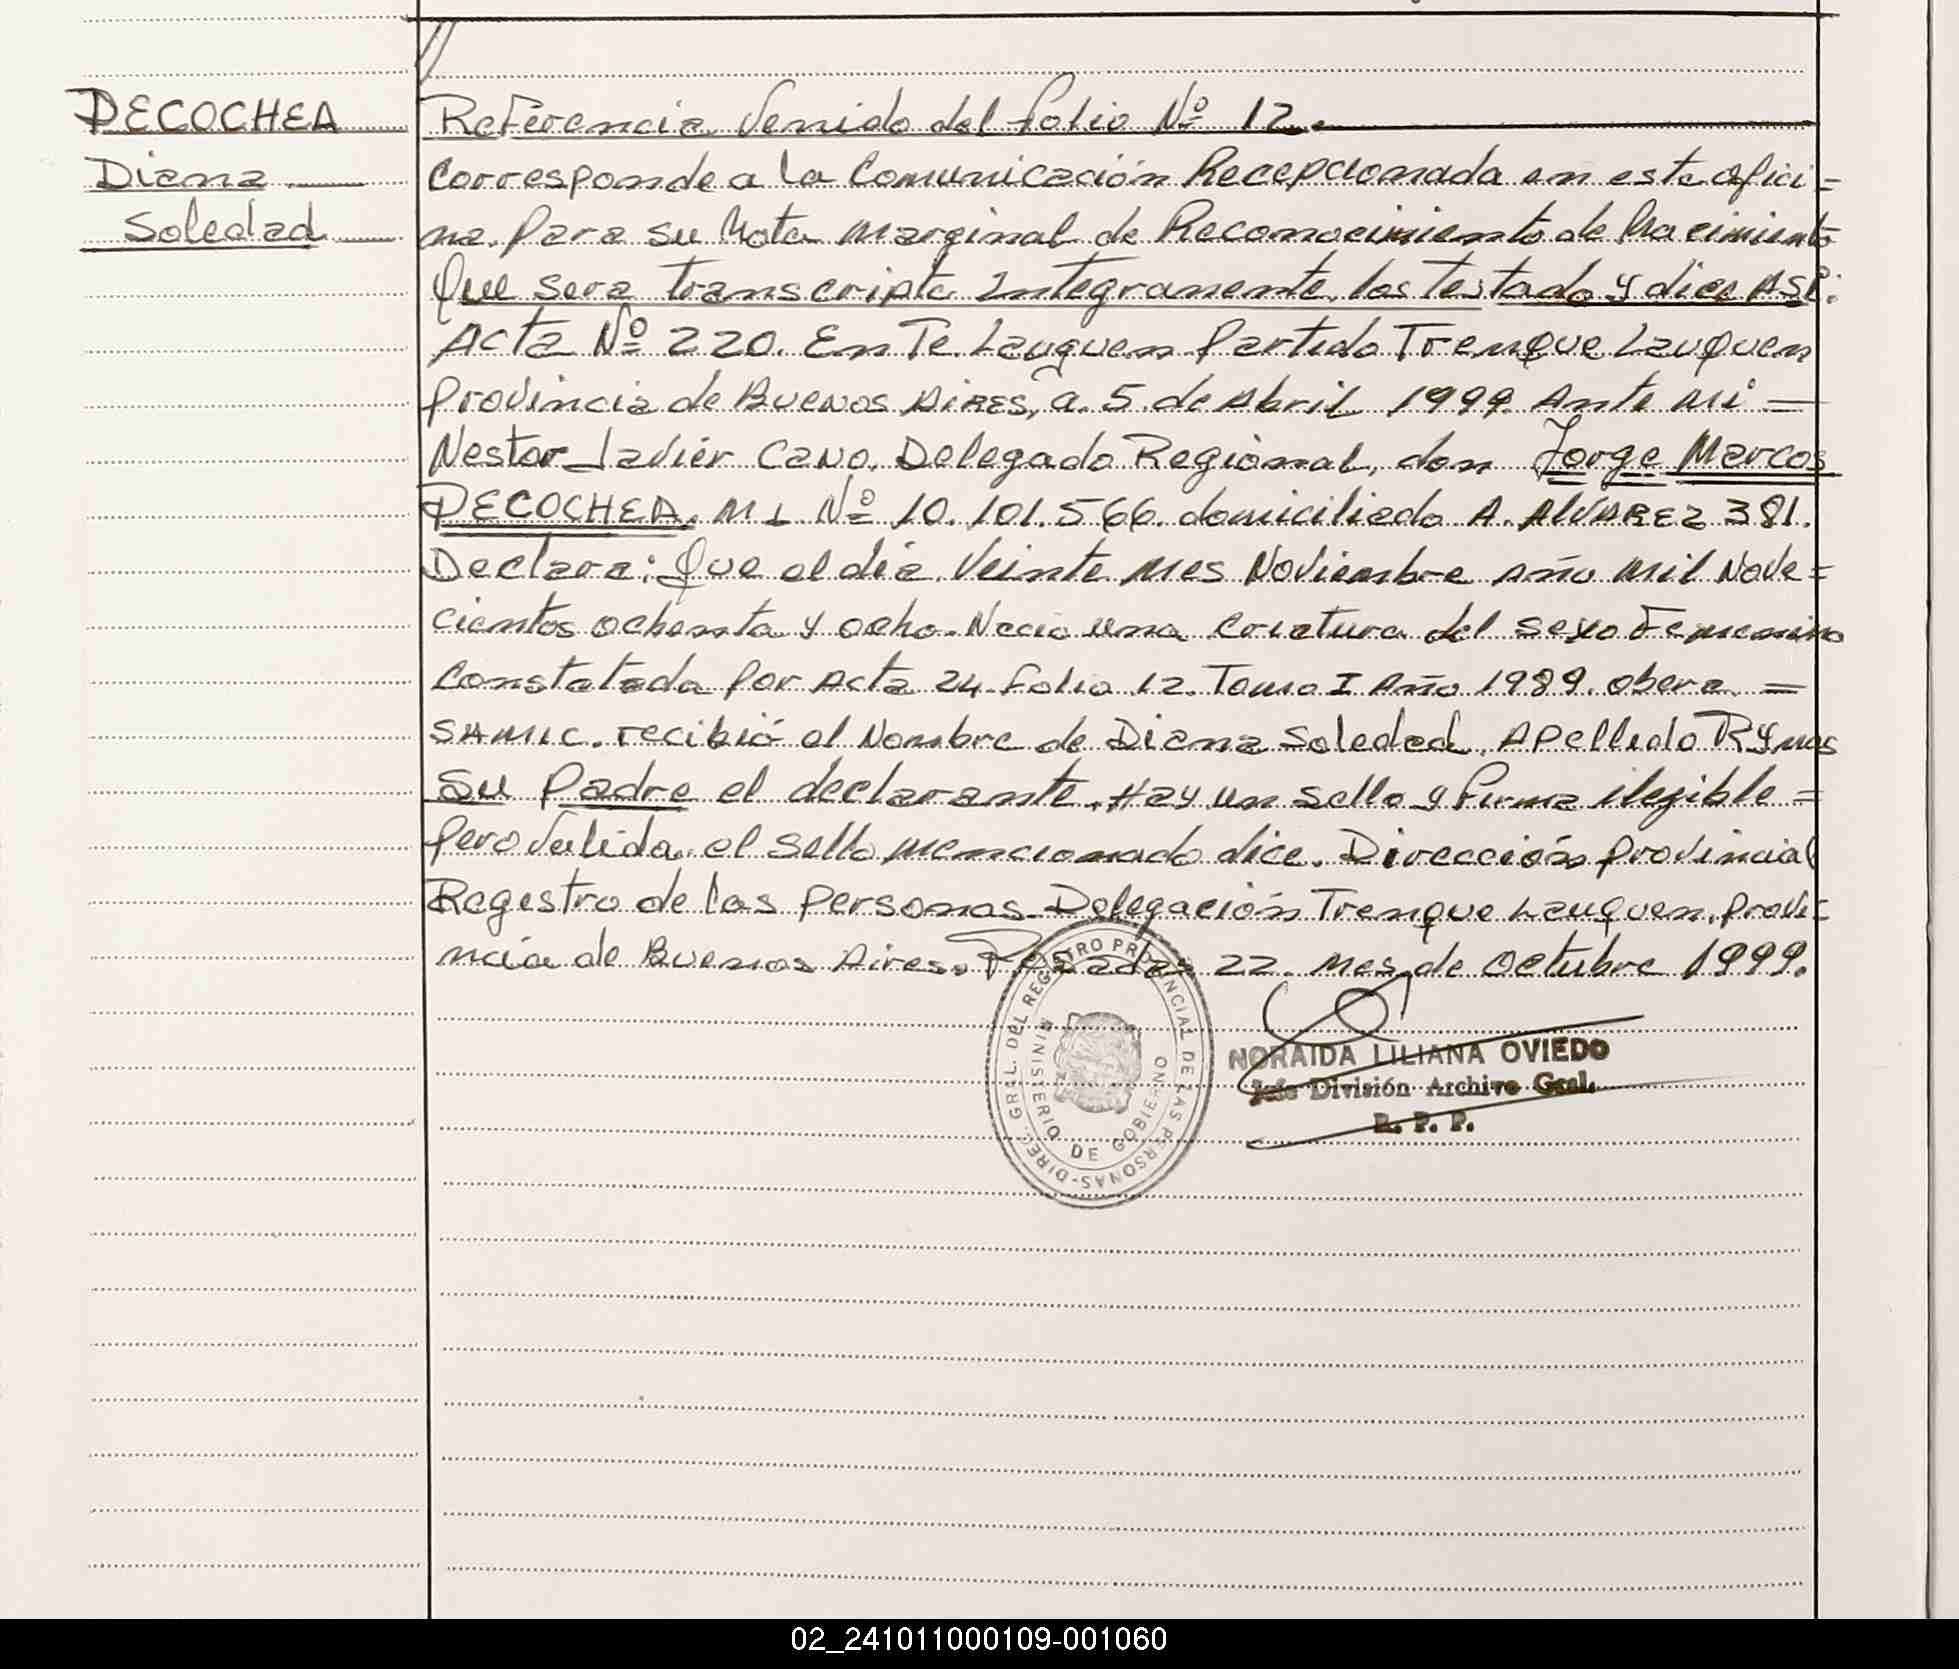 DECOCHEA
Diana
Soledad
Referencia Venido del folio Nº 12.
Corresponde a la Comunicación Recepcionada en esta ofici=
na. Para su Nota marginal de Reconocimiento de Nacimiento
Que sera transcripta Integramente, los testado y dice ASÍ:
Acta Nº 220. En Te. Lauquen Partido Trenque Lauquen
Provincia de Buenos Aires, a. 5. de Abril 1999. Ante Mi =
Nestor Javier Cano. Delegado Regional, don Jorge Marcos
DECOCHEA. M I Nº 10.101.566. domiciliado A. ALVAREZ 381.
Declara: Que el día Veinte mes Noviembre Año mil Nove=
cientos ochenta y ocho. Nacio una Criatura del sexo Femenino
Constatada por Acta 24 folio 12. Tomo I Año 1989. obera =
SAMIC. recibió el Nombre de Diana Soledad. Apellido
Su Padre el declarante. Hay un sello y firma ilegible =
Pero valida. el sello mencionado dice. Dirección Provincial
Registro de las Personas. Delegación Trenque Lauquen. Provi=
ncia de Buenos Aires. Posadas 22. mes de Octubre 1999.
DIREC. GRAL. DEL REGISTRO PROVINCIAL DE LAS PERSONAS-
MINISTERIO DE GOBIERNO
NORAIDA LILIANA OVIEDO
Jefe División Archivo Gral.
R. P. P.
02_241011000109-001060